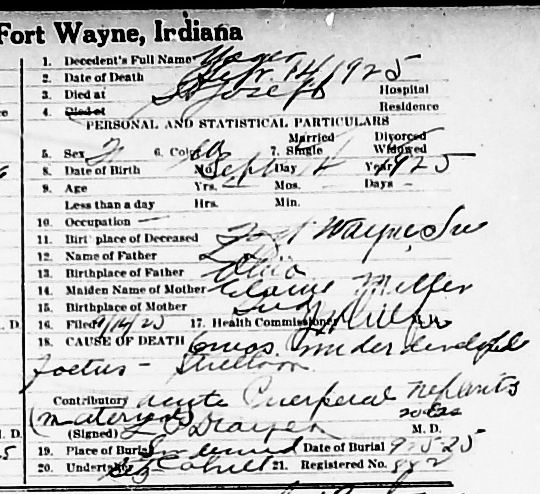 Fort Wayne, Indiana
1. Decedent's Full Name Yager
2. Date of Death Sept. 14, 1925
3. Died at St Joseph Hospital
4. Died at Residence
PERSONAL AND STATISTICAL PARTICULARS
Married Divorced
5. Sex F 6. Color 7. Single Widowed
8. Date of Birth Mo. Sept Day Year 1925
9. Age Yrs. Mos. Days –
Less than a day Hrs. Min.
10. Occupation —
11. Birthplace of Deceased Fort Wayne, Ind
12. Name of Father
13. Birthplace of Father Ohio
14. Maiden Name of Mother Miller
15. Birthplace of Mother Ind
16. Filed 9/14/25 17. Health Commissioner
18. CAUSE OF DEATH 6 mos. underdeveloped
foetus - Stillborn
Contributory acute Puerperal Nephritis
(maternal)
(Signed) M. D.
19. Place of Burial Date of Burial 9-15-25
20. Undertaker Cahill 21. Registered No. 882